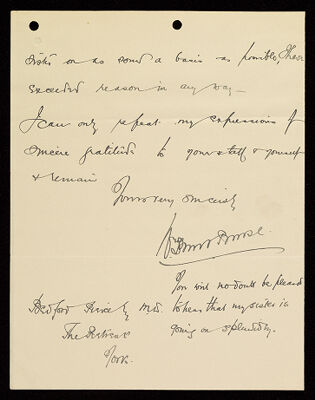 sister on as sound a basis as possible, I have
exceeded reason in any way –
I can only repeat my expressions of
sincere gratitude to your staff & yourself
& remain
Yours very sincerely
You will no doubt be pleased
Bedford Pierce Esq M.D. to hear that my sister is
The Retreat going on splendidly.
York.